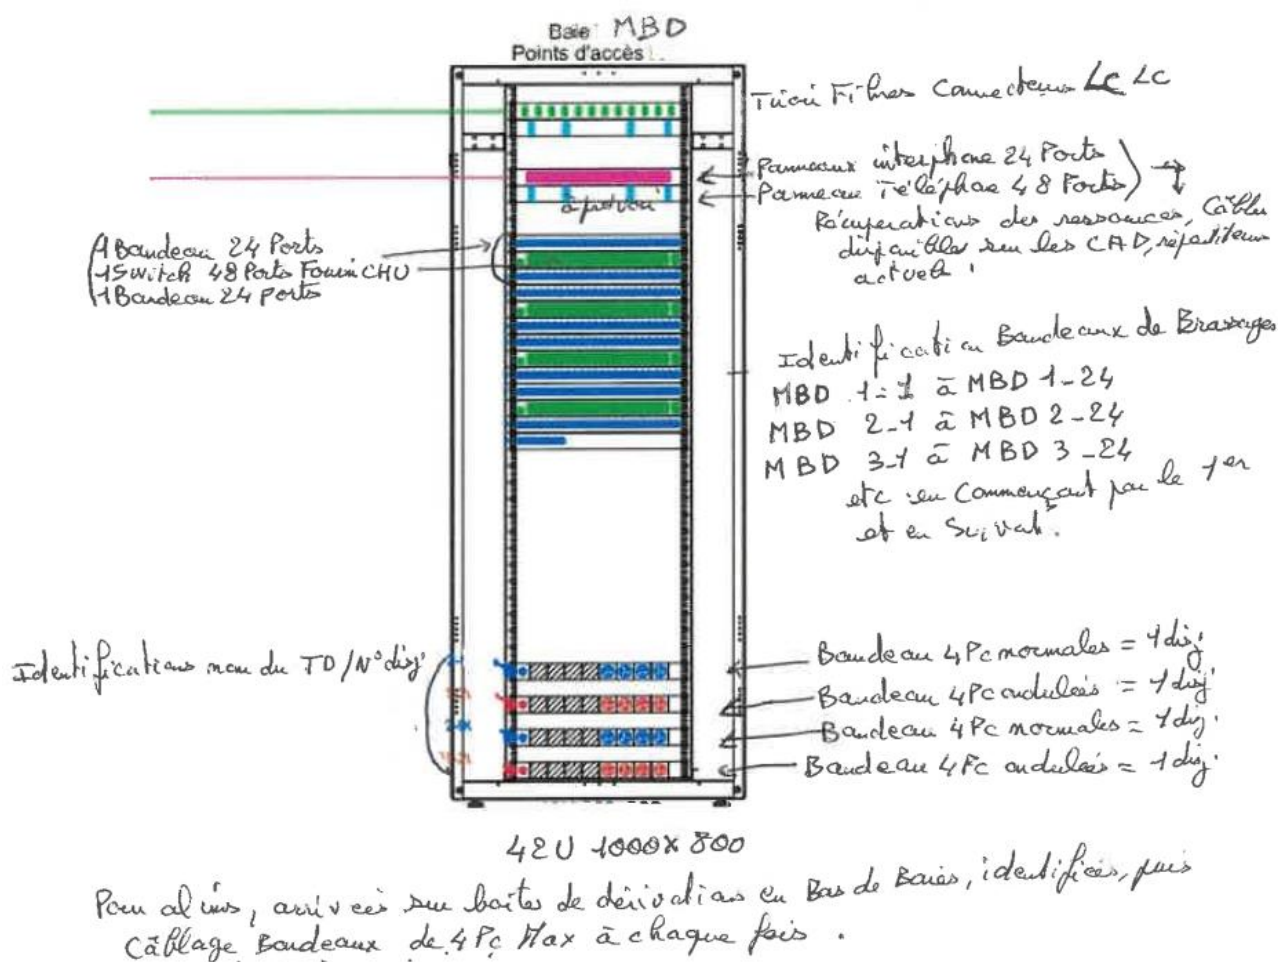 Baie MBD
Points d'accès
Tiroir Fibres Connecteurs LC LC
Panneaux interphone 24 Ports
Panneau Téléphone 48 Ports
à prévoir
Récuperations des ressources, Câbles
disponibles sur les CAD, répartiteurs
actuels
1 Bandeau 24 Ports
1 Switch 48 Ports Fourni CHU
1 Bandeau 24 Ports
Identification Bandeaux de Brassages
MBD 1-1 à MBD 1-24
MBD 2-1 à MBD 2-24
MBD 3-1 à MBD 3-24
etc en Commençant par le 1er
et en Suivant.
Identifications nom du TD/N° disj
Bandeau 4 Pc normales = 1 disj
Bandeau 4 Pc ondulées = 1 disj
Bandeau 4 Pc normales = 1 disj.
Bandeau 4 Pc ondulées = 1 disj.
42U 1000x800
Pour alims, arrivées sur boîtes de dérivations en Bas de Baies, identifiées, puis
Câblage Bandeaux de 4 Pc Max à chaque fois.